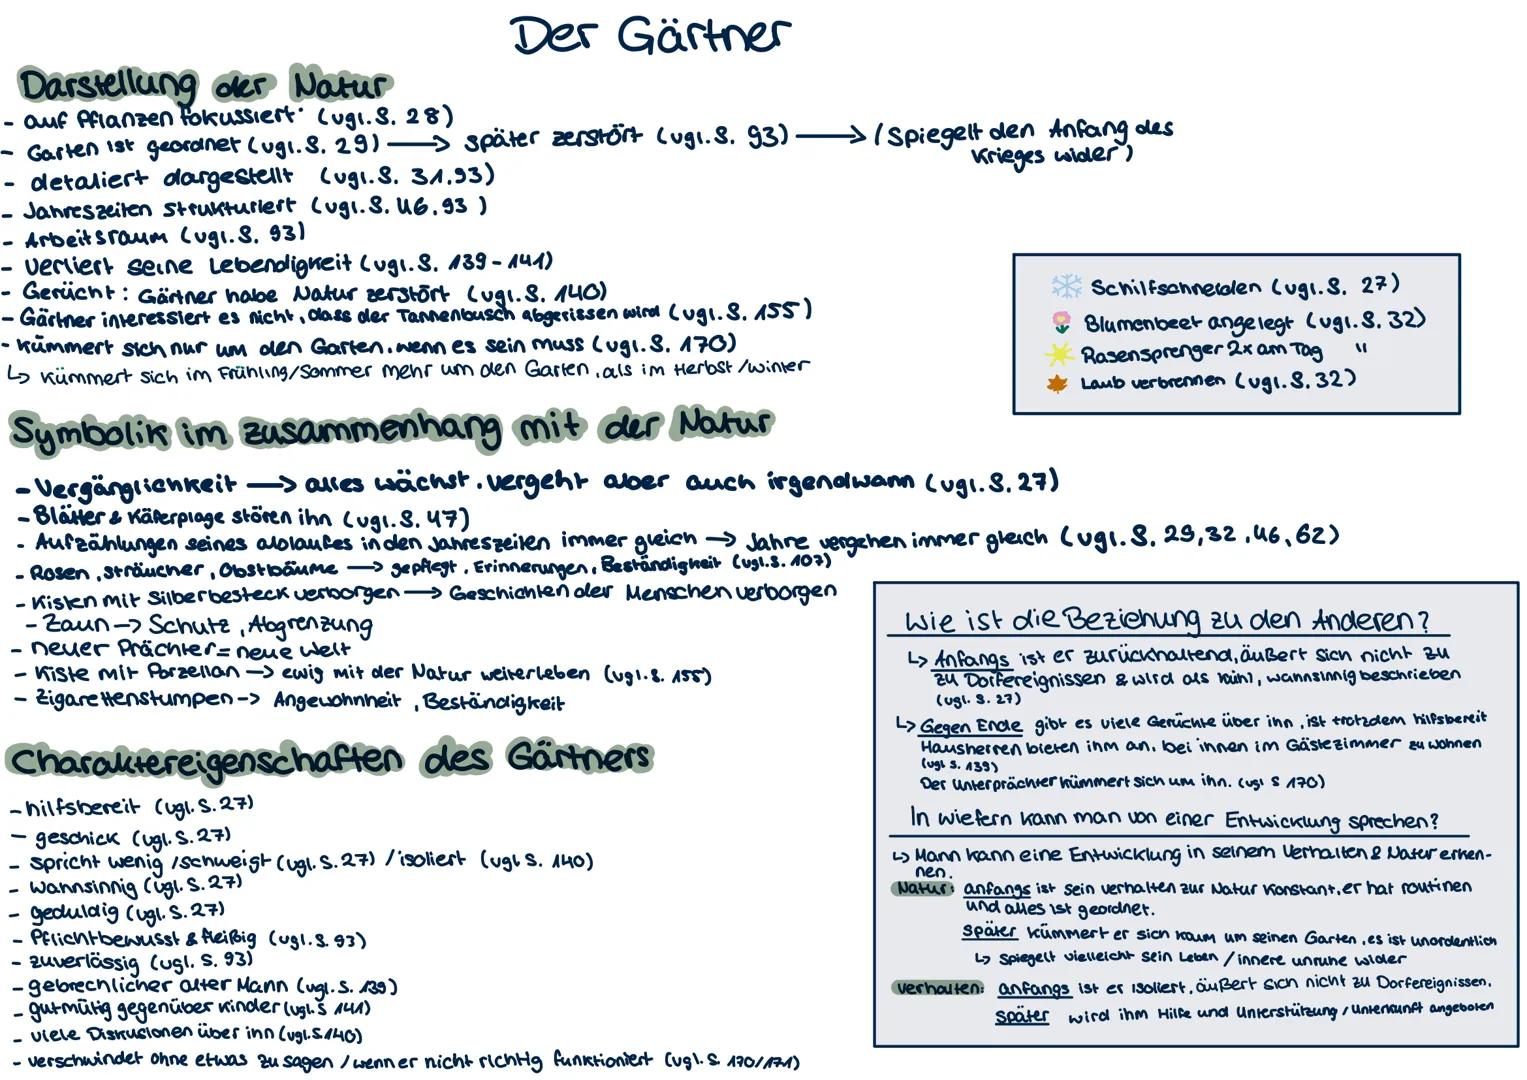 Der Gärtner
Darstellung der Natur
- auf Pflanzen fokussiert (vgl. S. 28)
- Garten ist geordnet (vgl. S. 29) → später zerstört (vgl. S. 93) → (Spiegelt den Anfang des
Krieges wider)
- detaliert dargestellt (vgl. S. 31, 93)
- Jahreszeiten strukturiert (vgl. S. 46, 93)
- Arbeitsraum (vgl. S. 93)
- Verliert seine Lebendigkeit (vgl. S. 139-141)
- Gerücht: Gärtner habe Natur zerstört (vgl. S. 140)
- Gärtner interessiert es nicht, dass der Tannenbusch abgerissen wird (vgl. S. 155)
- kümmert sich nur um den Garten, wenn es sein muss (vgl. S. 170)
↳ kümmert sich im Frühling/Sommer mehr um den Garten, als im Herbst/Winter
Schilfschneiden (vgl. S. 27)
Blumenbeet angelegt (vgl. S. 32)
Rasensprenger 2x am Tag "
Laub verbrennen (vgl. S. 32)
Symbolik im zusammenhang mit der Natur
- Vergänglichkeit → alles wächst, vergeht aber auch irgendwann (vgl. S. 27)
- Blätter & Käferplage stören ihn (vgl. S. 47)
- Aufzählungen seines ablaufes in den Jahreszeiten immer gleich → Jahre vergehen immer gleich (vgl. S. 29, 32, 46, 62)
- Rosen, sträucher, Obstbäume → gepflegt, Erinnerungen, Beständigkeit (vgl. S. 107)
- Kisten mit Silberbesteck verborgen → Geschichten der Menschen verborgen
- Zaun → Schutz, Abgrenzung
- neuer Prächter = neue Welt
- Kiste mit Porzellan → ewig mit der Natur weiterleben (vgl. S. 155)
- Zigarettenstumpen → Angewohnheit, Beständigkeit
Wie ist die Beziehung zu den Anderen?
↳ Anfangs ist er zurückhaltend, äußert sich nicht zu
zu Dorfereignissen & wird als kühl, wahnsinnig beschrieben
(vgl. S. 27)
↳ Gegen Ende gibt es viele Gerüchte über ihn, ist trotzdem hilfsbereit
Hausherren bieten ihm an, bei ihnen im Gästezimmer zu wohnen
(vgl S. 139)
Der Unterprächter kümmert sich um ihn. (vgl S 170)
In wiefern kann man von einer Entwicklung sprechen?
↳ Mann kann eine Entwicklung in seinem Verhalten & Natur erken-
nen.
Natur: anfangs ist sein verhalten zur Natur konstant, er hat routinen
und alles ist geordnet.
später kümmert er sich kaum um seinen Garten, es ist unordentlich
↳ spiegelt vielleicht sein Leben / innere unruhe wider
verhalten: anfangs ist er isoliert, äußert sich nicht zu Dorfereignissen.
später wird ihm Hilfe und Unterstützung / Unterkunft angeboten
Charaktereigenschaften des Gärtners
- hilfsbereit (vgl. S. 27)
- geschick (vgl. S. 27)
- spricht wenig / schweigt (vgl. S. 27) / isoliert (vgl S. 140)
- wahnsinnig (vgl. S. 27)
- geduldig (vgl. S. 27)
- Pflichtbewusst & fleißig (vgl. S. 93)
- zuverlässig (vgl. S. 93)
- gebrechlicher alter Mann (vgl. S. 139)
- gutmütig gegenüber kinder (vgl. S 141)
- viele Diskusionen über ihn (vgl. S. 140)
- verschwindet ohne etwas zu sagen / wenn er nicht richtig funktioniert (vgl. S. 170/171)